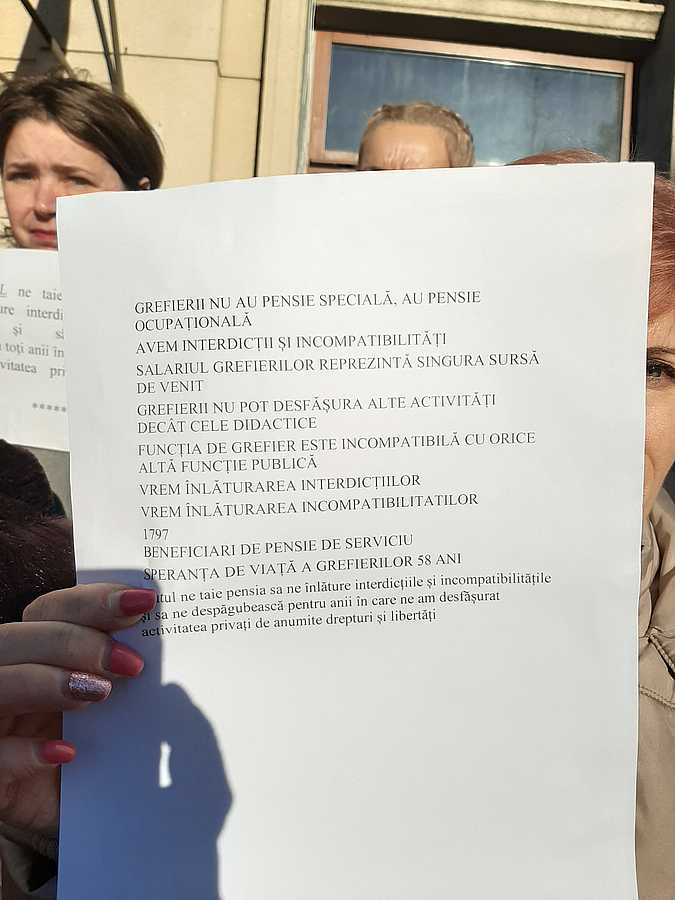 GREFIERII NU AU PENSIE SPECIALĂ, AU PENSIE
OCUPAȚIONALĂ
AVEM INTERDICȚII ȘI INCOMPATIBILITĂȚI
SALARIUL GREFIERILOR REPREZINTĂ SINGURA SURSĂ
DE VENIT
GREFIERII NU POT DESFĂȘURA ALTE ACTIVITĂȚI
DECÂT CELE DIDACTICE
FUNCȚIA DE GREFIER ESTE INCOMPATIBILĂ CU ORICE
ALTĂ FUNCȚIE PUBLICĂ
VREM ÎNLĂTURAREA INTERDICȚIILOR
VREM ÎNLĂTURAREA INCOMPATIBILITATILOR
1797
BENEFICIARI DE PENSIE DE SERVICIU
SPERANȚA DE VIAȚĂ A GREFIERILOR 58 ANI
ne taie pensia sa ne înlăture interdicțiile și incompatibilitățile
și sa ne despăgubească pentru anii în care ne am desfășurat
activitatea privați de anumite drepturi și libertăți
ne taie
și
toți anii în
*****